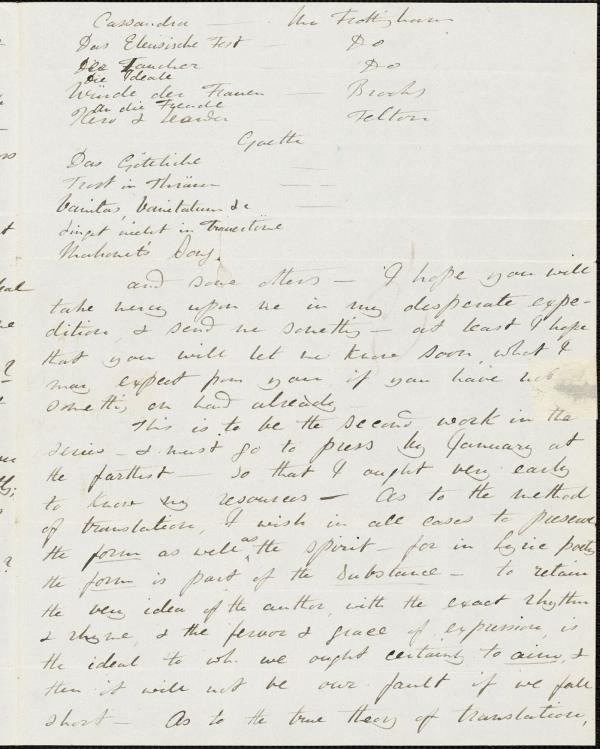 Cassandra — Mr Frothingham
Das Eleusische Fest Do
Der Taucher Do
Die Ideale
Würde der Frauen — Brooks
An die Freude
Hero & Leander Felton
Goethe
Das Göttliche
Trost in Thränen
Vanitas, Vanitatum &c
Singet nicht in Trauertöne
Mahomet's Song.
and some others — I hope you will
take mercy upon me in my desperate expe-
dition, & send me something — at least I hope
that you will let me know soon, what I
may expect from you, if you have not
something on hand already —
This is to be the second work in the
series — I must go to press by January at
the farthest — so that I ought very early
to know my resources — As to the method
of translation, I wish in all cases to preserve
the form as well as the spirit — for in Lyric poetry
the form is part of the substance — to retain
the very idea of the author, with the exact rhythm
& rhyme, & the fervor & grace of expression, is
the ideal to wh. we ought certainly to aim, &
then it will not be our fault if we fall
short — As to the true theory of translation,